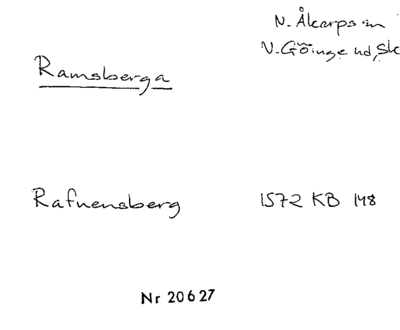 N. Åkarps sn
V. Göinge hd, Sk
Ramsberga
Rafnensberg 1572 KB 148
Nr 20627